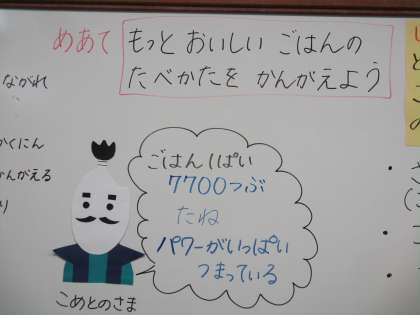 めあて もっと おいしい ごはんの
たべかたを かんがえよう
ながれ
かくにん
かんがえる
り
ごはん1ぱい
7700つぶ
たね
パワーがいっぱい
つまっている
こめとのさま